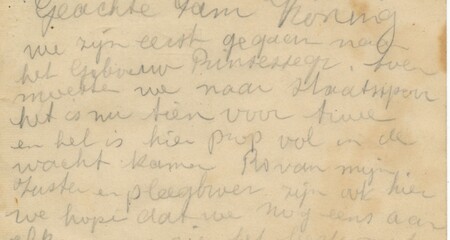 Geachte Fam Koning.
we zijn eerst gegaan naar
het Gebouw Prinsessegr. toen
moesten we naar Staatsspoor
het is nu tien voor twee
en het is hier prop vol in de
wacht kamer Ro van mijn
Zuster en pleegbroer zijn ook hier
we hope dat we nog eens aan
elk het